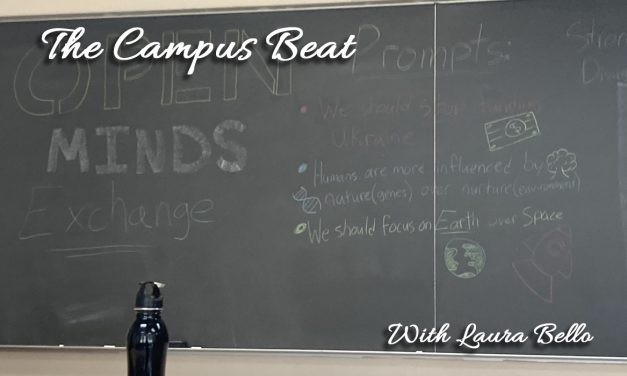 The Campus Beat
OPEN
MINDS
Exchange
Prompts:
We should stop funding
Ukraine
Humans are more influenced by
nature(genes) over nurture(environment)
We should focus on Earth over Space
With Laura Bello